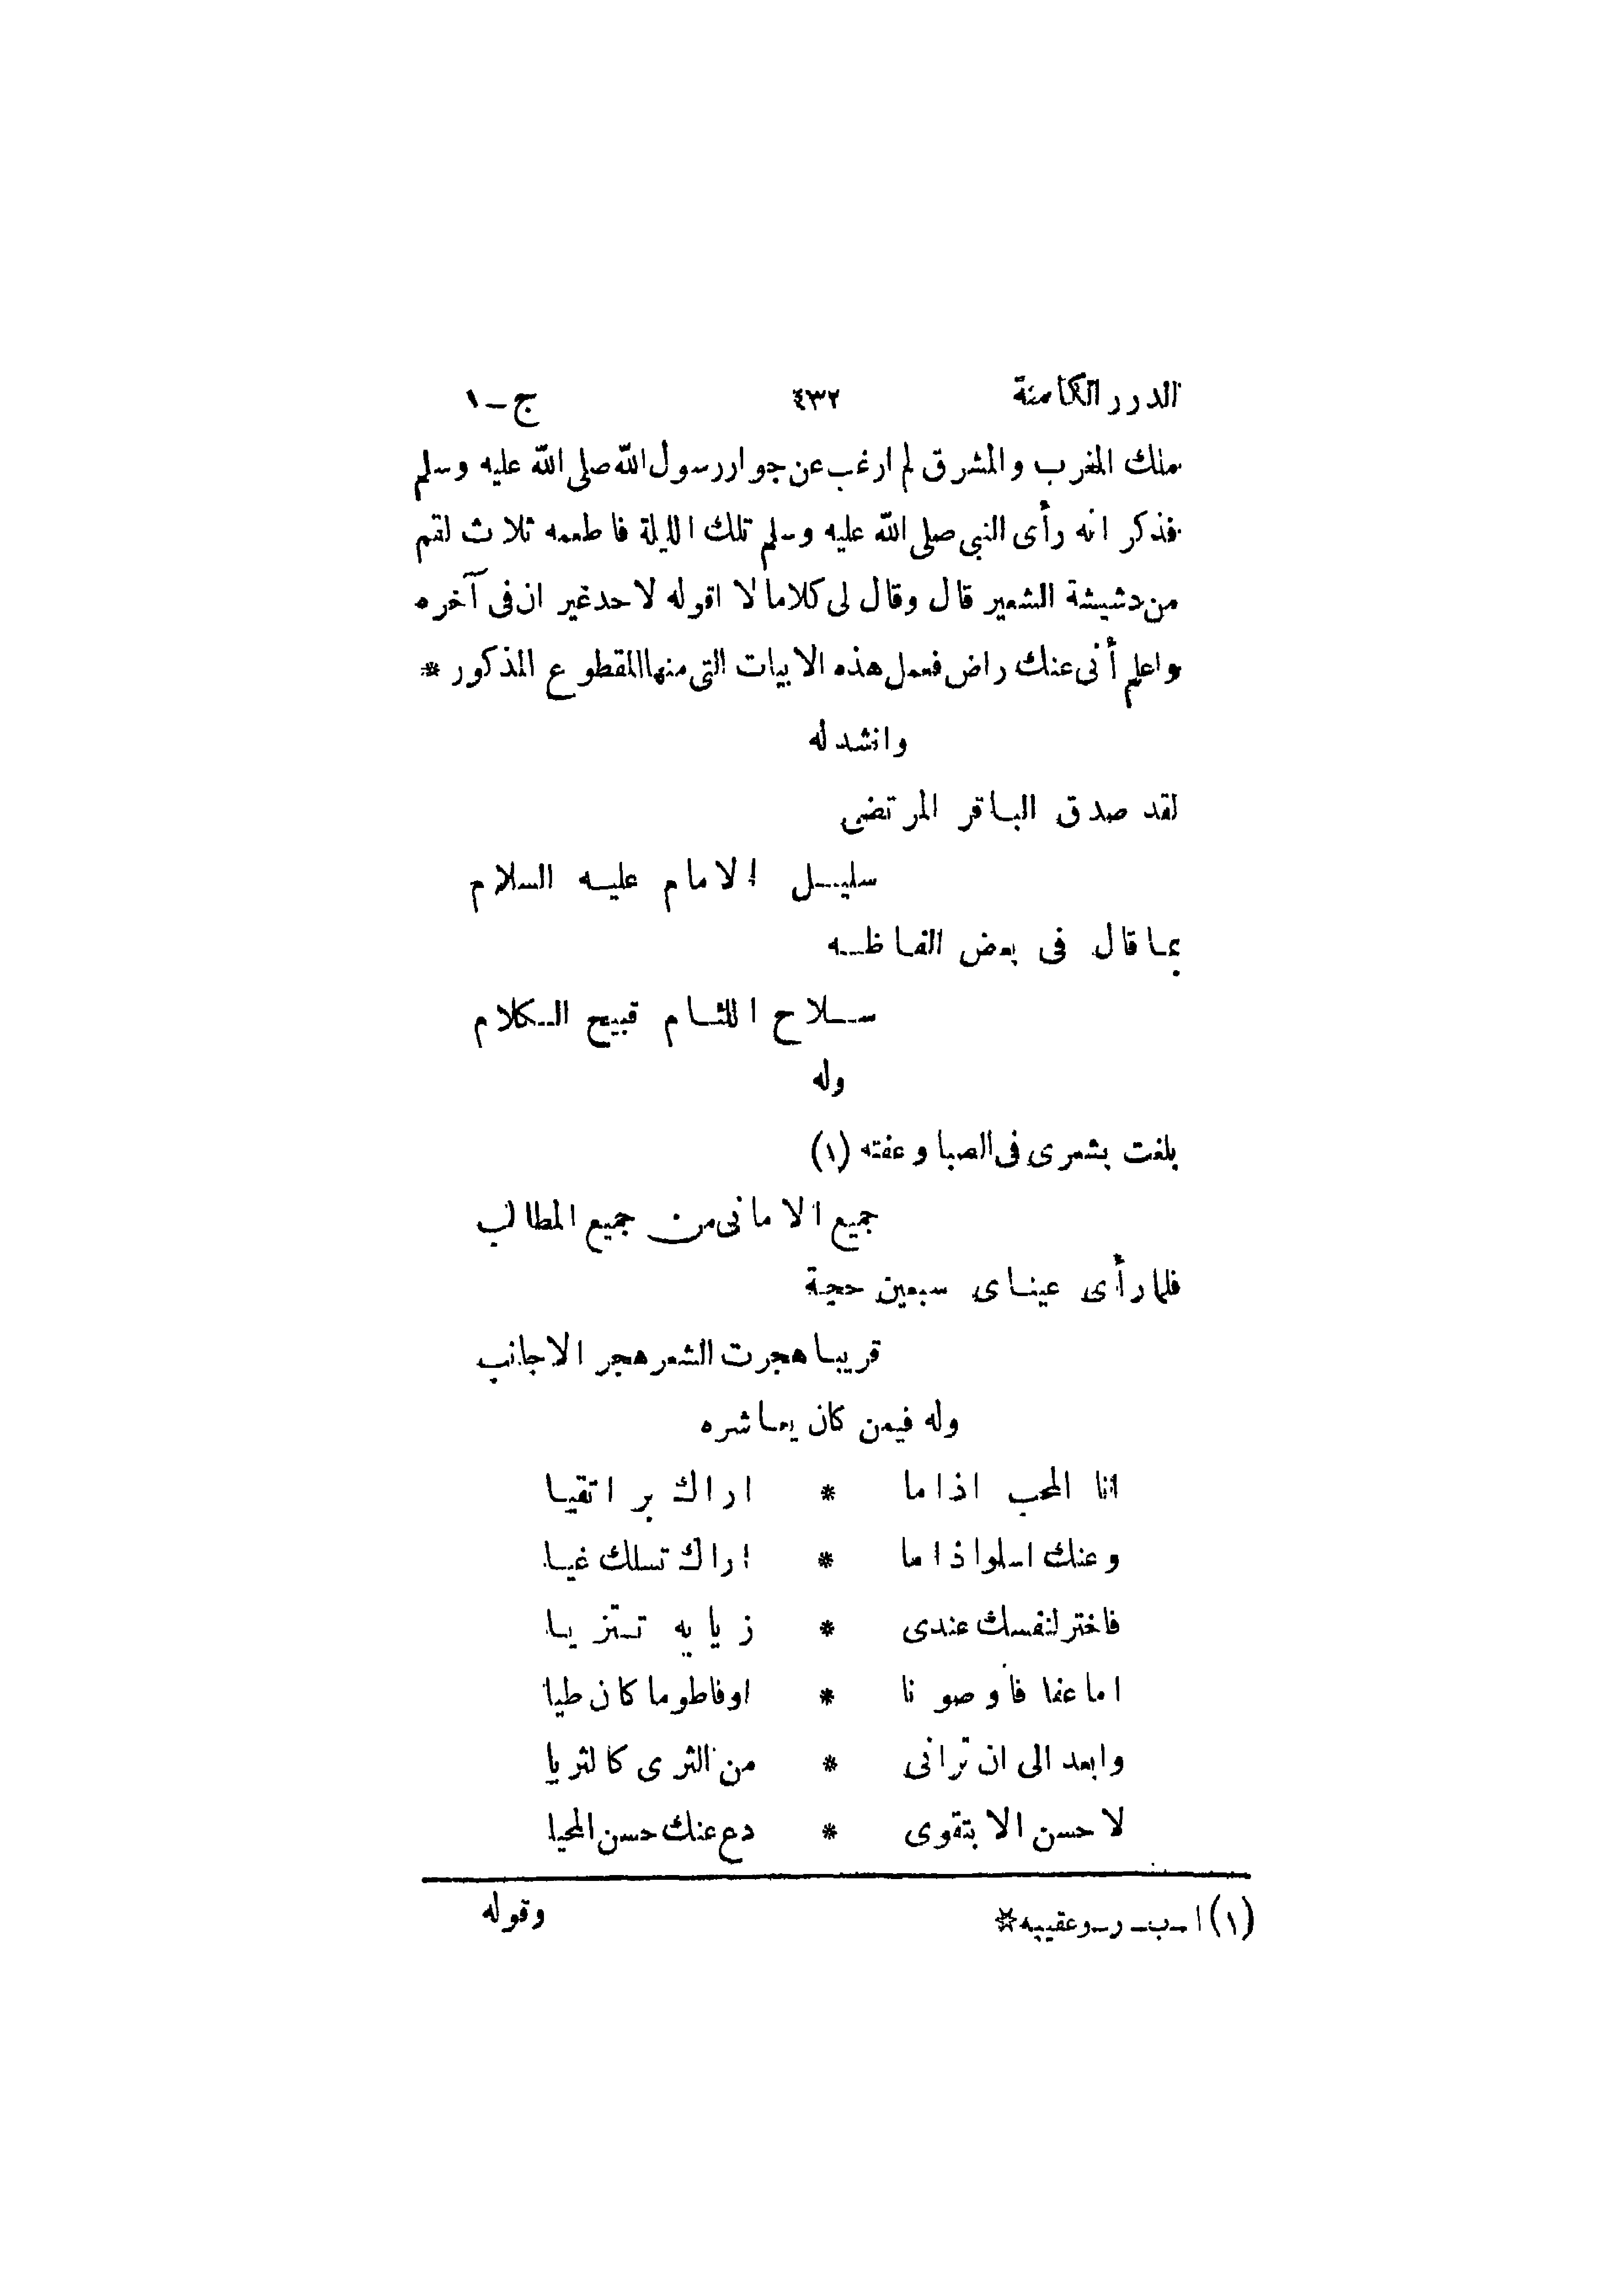 الدرر الكامنة ٤٣٢ ج - ١
ملك المغرب والمشرق لم ارغب عن جوار رسول الله صلى الله عليه وسلم
فذكر انه رأى النبى صلى الله عليه وسلم تلك الليلة فاطعمه ثلاث لقم
من دشيشة الشعير قال وقال لى كلاما لا اقوله لاحد غير ان فى آخره
واعلم أنى عنك راض فعمل هذه الابيات التى منها المقطوع المذكور *
وانشد له
لقد صدق الباقر المرتضى
سليل الامام عليه السلام
بما قال فى بعض الفاظه
سلاح اللئام قبيح الكلام
وله
بلغت بشعرى فى الصبا وعفته (١)
جميع الامانى من جميع المطالب
فلما رأى عيناى سبعين حجة
قريبا هجرت الشعر هجر الاجانب
وله فيمن كان يعاشره
انا المحب اذا ما * اراك برا تقيا
وعنك اسلو اذا ما * اراك تسلك غيا
فاختر لنفسك عندى * زيا به تتزيا
اما عفافا وصونا * او فاطو ما كان طيا
وابعد الى ان ترانى * من الثرى كالثريا
لا حسن الا بتقوى * دع عنك حسن المحيا
(١) ا - ب - ر - وعقيبه *
وقوله